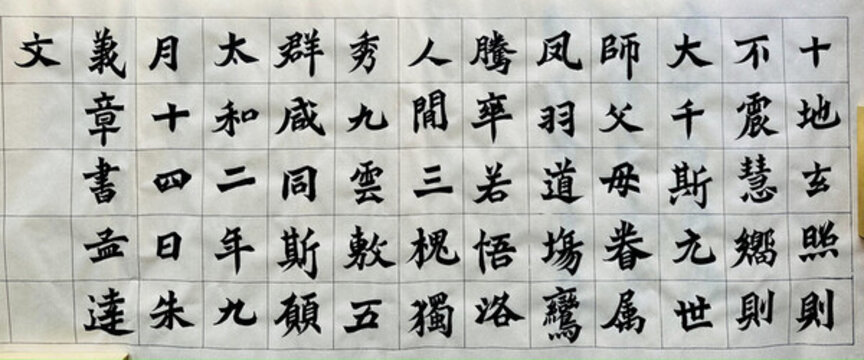 十地玄照則
不震慧嚮則
大千斯元世
師父母眷属
凤羽道塲鸞
騰率若悟洛
人間三槐獨
秀九雲敷五
群咸同斯願
太和二年九
月十四日朱
義章書孟達
文